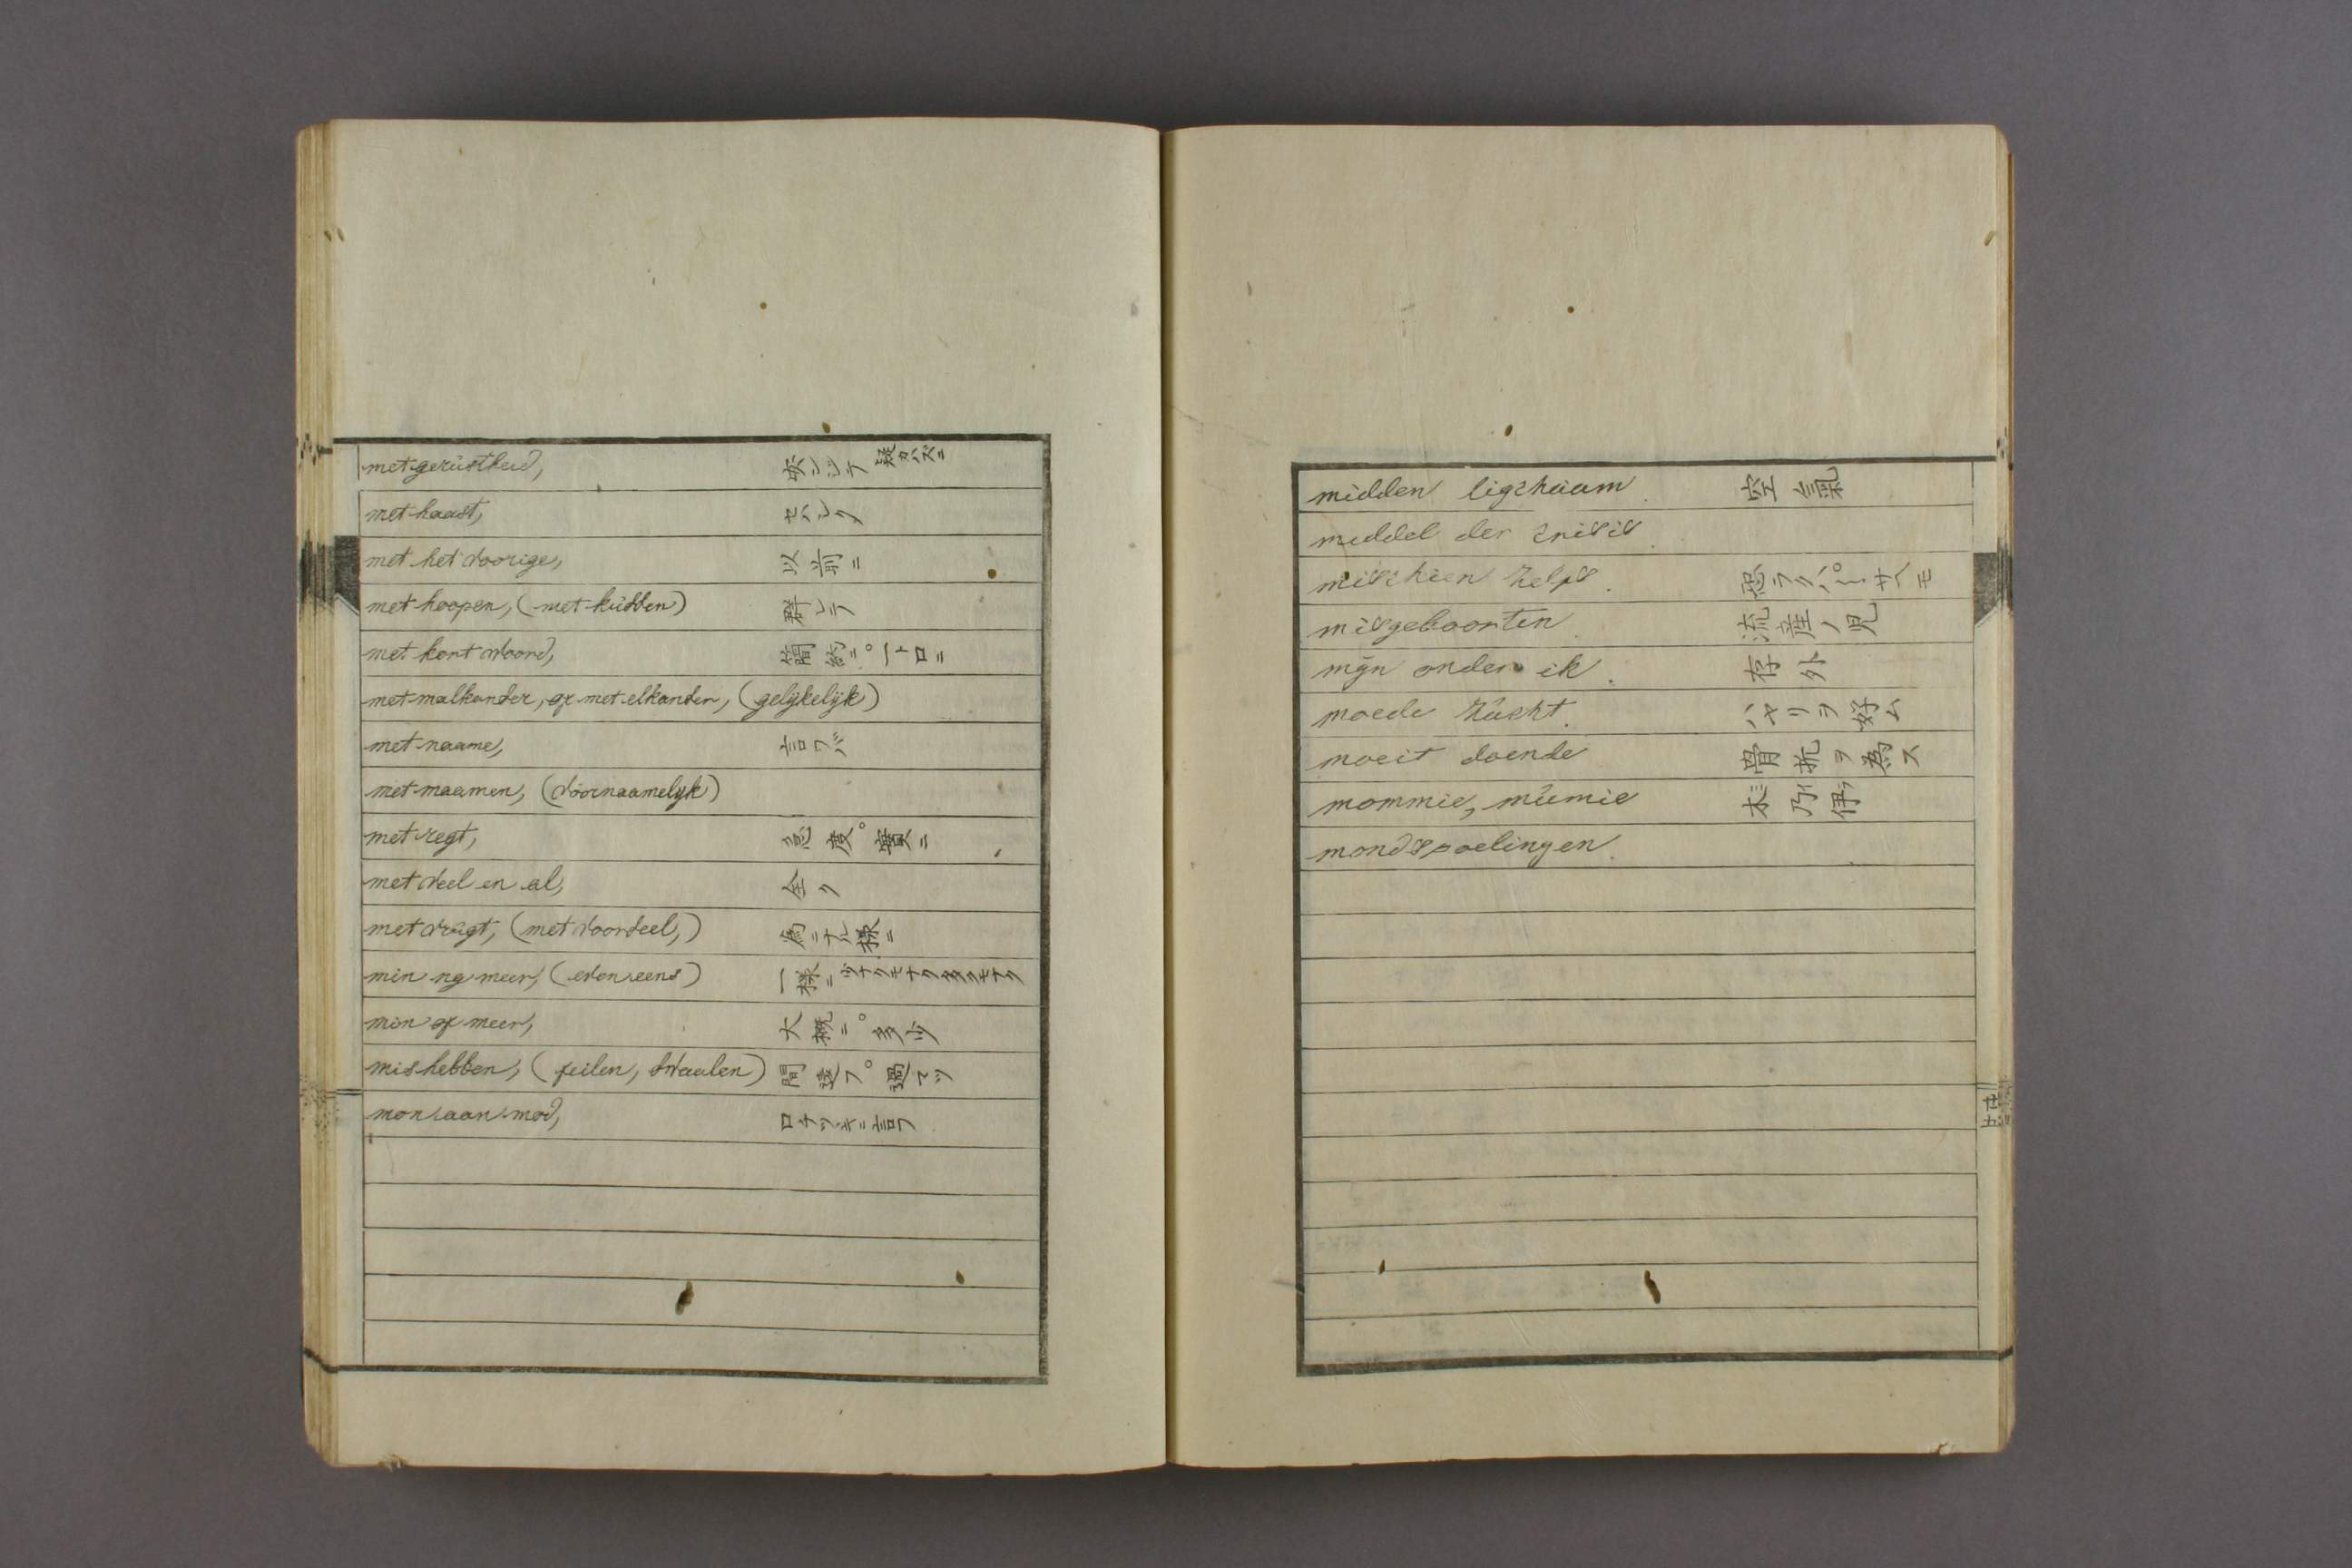 met gerüstheid, 安ンジテ 疑ガハズニ
met haast,
met het voorige, 以前ニ
met hoopen, (met küdden) 群レテ
met kort woord, 簡約ニ。一ト口ニ
met malkander, of met elkander, (gelykelyk)
met naame, 言ワバ
met maamen, (voornaamelyk)
met regt, 急度。實ニ
met veel en al, 全ク
met vrügt, (met voordeel,) 為ニナル様ニ
min ng meer, (even eens) 一様ニ 少ナクモナク多クモナク
min of meer, 大概ニ。多少
mis hebben, (feilen, dwaalen) 間違フ。過マツ
mon aan mod, 口ナヅキニ言フ
midden ligchaam. 空氣
middel der crisis.
mischien zelfs. 恐ラクハ。サヘモ
misgeboorten. 流産ノ児
mijn onder ik. 存外
moede zücht. ハヤリヲ好ム
moeit doende 骨折ヲ為ス
mommie, mümie 木乃伊
mondspoelingen.